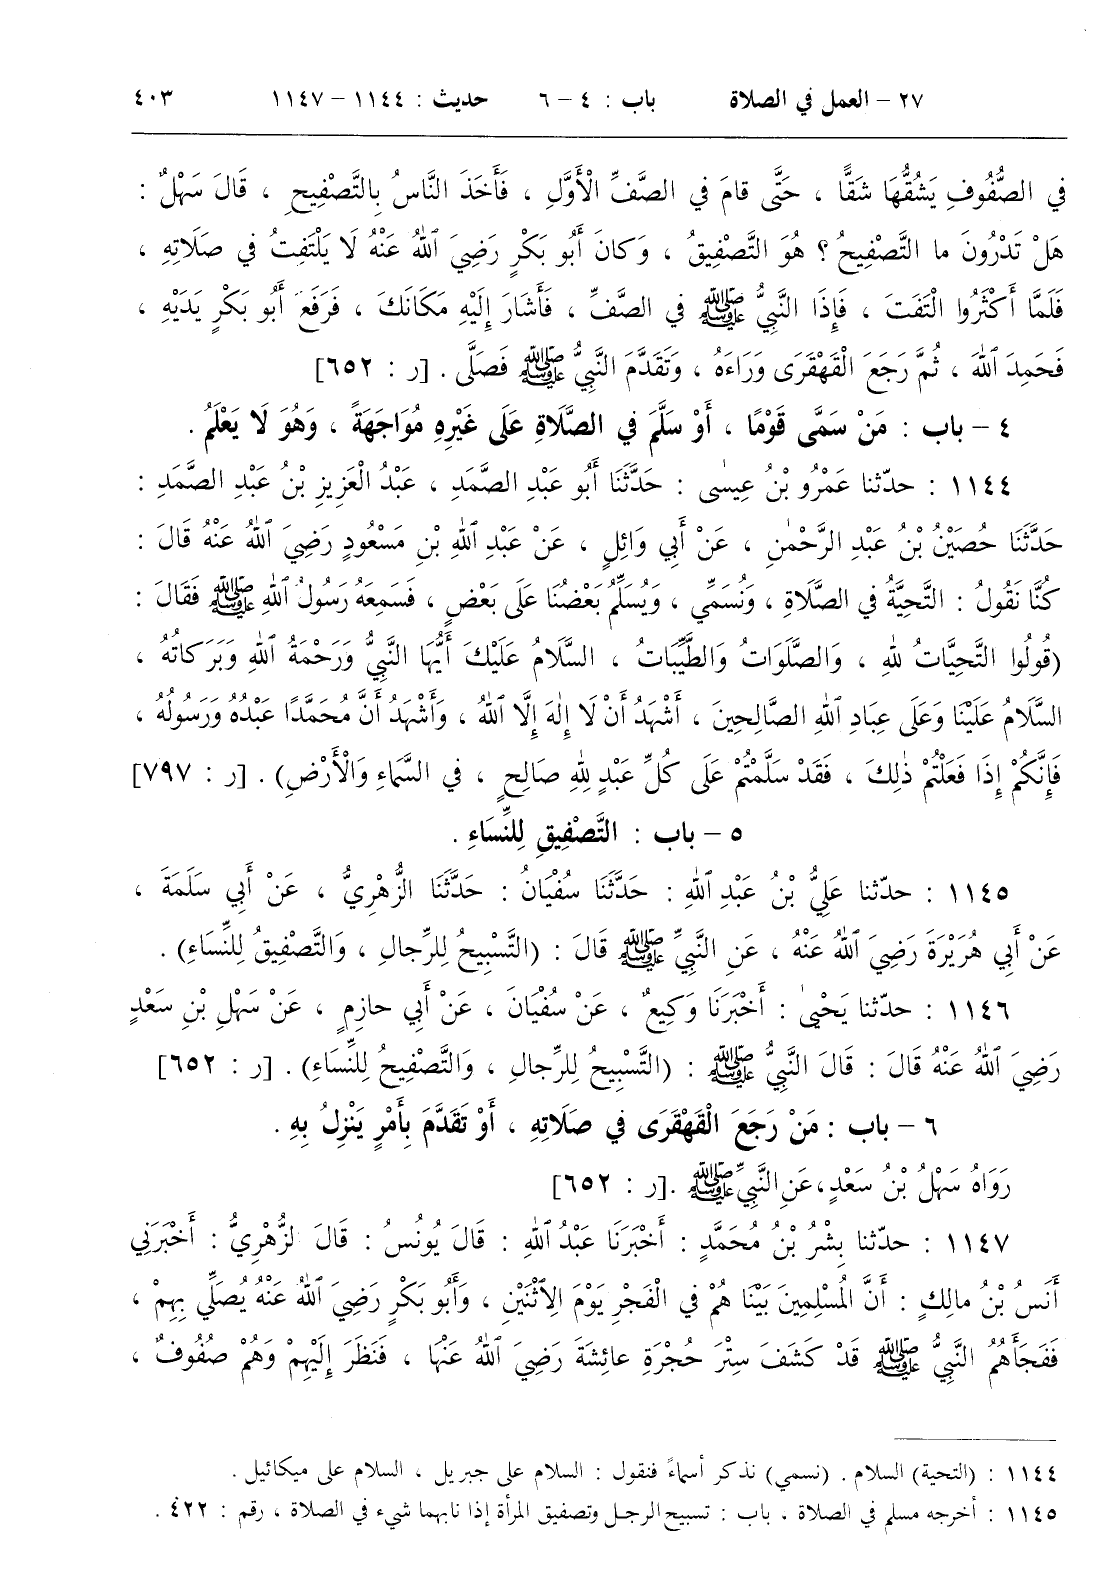 ٢٧ – العمل في الصلاة باب : ٤ – ٦ حديث : ١١٤٤ – ١١٤٧ ٤٠٣
في الصُّفُوفِ يَشُقُّهَا شَقًّا ، حَتَّى قامَ في الصَّفِّ الْأَوَّلِ ، فَأَخَذَ النَّاسُ بِالتَّصْفِيحِ ، قَالَ سَهْلٌ :
هَلْ تَدْرُونَ ما التَّصْفِيحُ ؟ هُوَ التَّصْفِيقُ ، وَكانَ أَبُو بَكْرٍ رَضِيَ ٱللهُ عَنْهُ لَا يَلْتَفِتُ في صَلَاتِهِ ،
فَلَمَّا أَكْثَرُوا الْتَفَتَ ، فَإِذَا النَّبِيُّ ﷺ في الصَّفِّ ، فَأَشَارَ إِلَيْهِ مَكَانَكَ ، فَرَفَعَ أَبُو بَكْرٍ يَدَيْهِ ،
فَحَمِدَ ٱللهَ ، ثُمَّ رَجَعَ الْقَهْقَرَى وَرَاءَهُ ، وَتَقَدَّمَ النَّبِيُّ ﷺ فَصَلَّى . [ر : ٦٥٢]
٤ – باب : مَنْ سَمَّى قَوْمًا ، أَوْ سَلَّمَ في الصَّلَاةِ عَلَى غَيْرِهِ مُوَاجَهَةً ، وَهُوَ لَا يَعْلَمُ .
١١٤٤ : حدّثنا عَمْرُو بْنُ عِيسٰى : حَدَّثَنَا أَبُو عَبْدِ الصَّمَدِ ، عَبْدُ الْعَزِيزِ بْنُ عَبْدِ الصَّمَدِ :
حَدَّثَنَا حُصَيْنُ بْنُ عَبْدِ الرَّحْمٰنِ ، عَنْ أَبِي وَائِلٍ ، عَنْ عَبْدِ ٱللهِ بْنِ مَسْعُودٍ رَضِيَ ٱللهُ عَنْهُ قَالَ :
كُنَّا نَقُولُ : التَّحِيَّةُ في الصَّلَاةِ ، وَنُسَمِّي ، وَيُسَلِّمُ بَعْضُنَا عَلَى بَعْضٍ ، فَسَمِعَهُ رَسُولُ ٱللهِ ﷺ فَقَالَ :
(قُولُوا التَّحِيَّاتُ لِلهِ ، وَالصَّلَوَاتُ وَالطَّيِّبَاتُ ، السَّلَامُ عَلَيْكَ أَيُّهَا النَّبِيُّ وَرَحْمَةُ ٱللهِ وَبَرَكاتُهُ ،
السَّلَامُ عَلَيْنَا وَعَلَى عِبَادِ ٱللهِ الصَّالِحِينَ ، أَشْهَدُ أَنْ لَا إِلٰهَ إِلَّا ٱللهُ ، وَأَشْهَدُ أَنَّ مُحَمَّدًا عَبْدُهُ وَرَسُولُهُ ،
فَإِنَّكُمْ إِذَا فَعَلْتُمْ ذٰلِكَ ، فَقَدْ سَلَّمْتُمْ عَلَى كُلِّ عَبْدٍ لِلهِ صَالِحٍ ، في السَّمَاءِ وَالْأَرْضِ) . [ر : ٧٩٧]
٥ – باب : التَّصْفِيقِ لِلنِّسَاءِ .
١١٤٥ : حدّثنا عَلِيُّ بْنُ عَبْدِ ٱللهِ : حَدَّثَنَا سُفْيَانُ : حَدَّثَنَا الزُّهْرِيُّ ، عَنْ أَبِي سَلَمَةَ ،
عَنْ أَبِي هُرَيْرَةَ رَضِيَ ٱللهُ عَنْهُ ، عَنِ النَّبِيِّ ﷺ قَالَ : (التَّسْبِيحُ لِلرِّجالِ ، وَالتَّصْفِيقُ لِلنِّسَاءِ) .
١١٤٦ : حدّثنا يَحْيىٰ : أَخْبَرَنَا وَكِيعٌ ، عَنْ سُفْيَانَ ، عَنْ أَبِي حازِمٍ ، عَنْ سَهْلِ بْنِ سَعْدٍ
رَضِيَ ٱللهُ عَنْهُ قَالَ : قَالَ النَّبِيُّ ﷺ : (التَّسْبِيحُ لِلرِّجالِ ، وَالتَّصْفِيحُ لِلنِّسَاءِ) . [ر : ٦٥٢]
٦ – باب : مَنْ رَجَعَ الْقَهْقَرَى في صَلَاتِهِ ، أَوْ تَقَدَّمَ بِأَمْرٍ يَنْزِلُ بِهِ .
رَوَاهُ سَهْلُ بْنُ سَعْدٍ ، عَنِ النَّبِيِّ ﷺ . [ر : ٦٥٢]
١١٤٧ : حدّثنا بِشْرُ بْنُ مُحَمَّدٍ : أَخْبَرَنَا عَبْدُ ٱللهِ : قَالَ يُونُسُ : قَالَ لزُّهْرِيُّ : أَخْبَرَنِي
أَنَسُ بْنُ مالِكٍ : أَنَّ الْمُسْلِمِينَ بَيْنَا هُمْ في الْفَجْرِ يَوْمَ الِاثْنَيْنِ ، وَأَبُو بَكْرٍ رَضِيَ ٱللهُ عَنْهُ يُصَلِّي بِهِمْ ،
فَفَجَأَهُمُ النَّبِيُّ ﷺ قَدْ كَشَفَ سِتْرَ حُجْرَةِ عائِشَةَ رَضِيَ ٱللهُ عَنْهَا ، فَنَظَرَ إِلَيْهِمْ وَهُمْ صُفُوفٌ ،
١١٤٤ : (التحية) السلام . (نسمي) نذكر أسماءً فنقول : السلام على جبريل ، السلام على ميكائيل .
١١٤٥ : أخرجه مسلم في الصلاة ، باب : تسبيح الرجل وتصفيق المرأة إذا نابهما شيء في الصلاة ، رقم : ٤٢٢ .